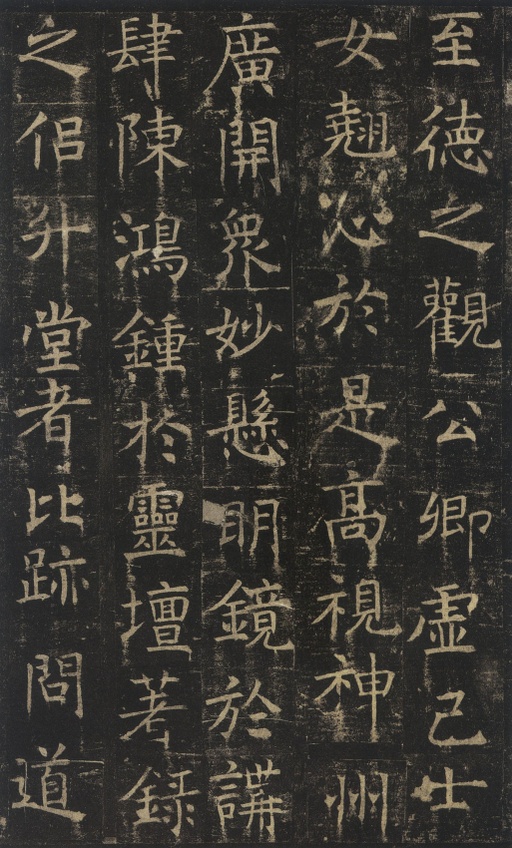 至德之觀公卿虛己士
女翹沁於是高視神州
廣開眾妙懸明鏡於講
肆陳鴻鍾於靈壇著錄
之侶升堂者比跡問道